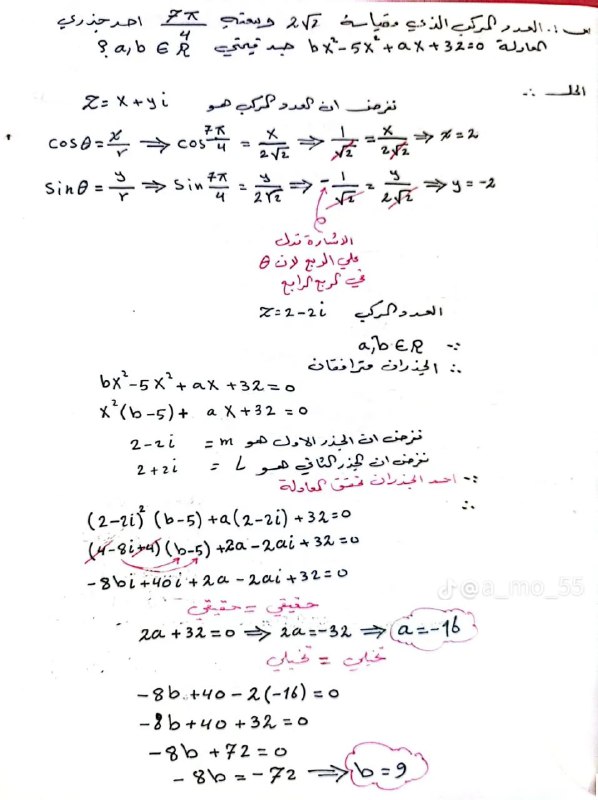 س ١: العدد المركب الذي مقياسه 2√2 وسعته 7π/4 احد جذري
المعادلة bx²-5x²+ax+32=0 جد قيمتي a,b ∈ R ؟
الحل :.
نفرض ان العدد المركب هو z = x+yi
cosθ = x/r ⟹ cos 7π/4 = x/2√2 ⟹ 1/√2 = x/2√2 ⟹ x=2
sinθ = y/r ⟹ sin 7π/4 = y/2√2 ⟹ -1/√2 = y/2√2 ⟹ y=-2
الاشارة تدل
على الربع لان θ
في الربع الرابع
العدد المركب z=2-2i
∵ a,b ∈ R
∴ الجذران مترافقان
bx²-5x²+ax+32=0
x²(b-5)+ ax+32=0
نفرض ان الجذر الاول هو m = 2-2i
نفرض ان الجذر الثاني هو L = 2+2i
∵ احد الجذران تحقق المعادلة
∴
(2-2i)² (b-5)+a(2-2i)+32=0
(4-8i+4)(b-5)+2a-2ai+32=0
-8bi+40i+2a-2ai+32=0
@a_mo_55
حقيقي = حقيقي
2a+32=0 ⟹ 2a=-32 ⟹ a=-16
تخيلي = تخيلي
-8b+40-2(-16)=0
-8b+40+32=0
-8b+72=0
-8b=-72 ⟹ b=9